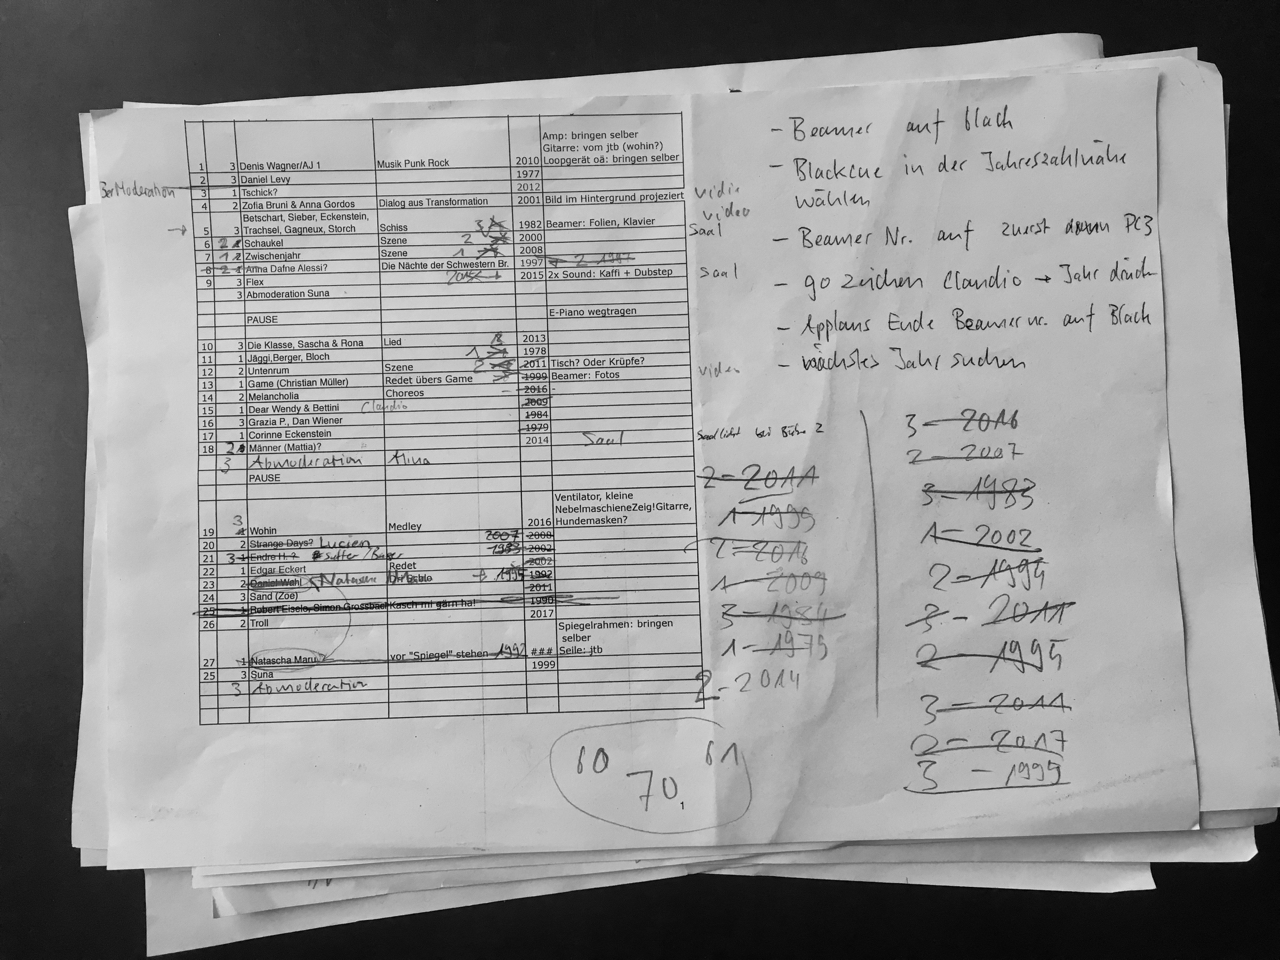 Amp: bringen selber
Gitarre: vom jtb (wohin?)
1 3 Denis Wagner/AJ 1 Musik Punk Rock 2010 Loopgerät oä: bringen selber
2 3 Daniel Levy 1977
3er Moderation
3 1 Tschick? 2012
4 2 Zofia Bruni & Anna Gordos Dialog aus Transformation 2001 Bild im Hintergrund projeziert
video
Betschart, Sieber, Eckenstein,
5 3 Trachsel, Gagneux, Storch Schiss 3 1982 Beamer: Folien, Klavier Saal
6 2 Schaukel Szene 2 2000
7 1 Zwischenjahr Szene 1 2008
8 2 Anna Dafne Alessi? Die Nächte der Schwestern Br. 1997 2 1997
9 3 Flex 2015 2015 2x Sound: Kaffi + Dubstep Saal
3 Abmoderation Suna
PAUSE E-Piano wegtragen
10 3 Die Klasse, Sascha & Rona Lied 3 2013
11 1 Jäggi,Berger, Bloch 1 1978
12 2 Untenrum Szene 2 2011 Tisch? Oder Krüpfe?
13 1 Game (Christian Müller) Redet übers Game 1999 Beamer: Fotos video
14 2 Melancholia Choreos 2016 -
15 1 Dear Wendy & Bettini Claudio 2009
16 3 Grazia P., Dan Wiener 1984
17 1 Corinne Eckenstein 1979
18 2 Männer (Mattia)? 2014 Saal
3 Abmoderation Alina
PAUSE
Ventilator, kleine
NebelmaschieneZeig!Gitarre,
19 3 Wohin Medley 2016 Hundemasken?
20 2 Strange Days? Lucien 2007 2008
21 3 1 Endre H. ? Sutter / 1983 2002
22 1 Edgar Eckert Redet 2002
23 2 Daniel Wahl Natascha 1995 1992
24 3 Sand (Zoe) 2011
25 1 Robert Eiselo, Simon Grossbacher Kasch mi gärn ha! 1990
26 2 Troll 2017
Spiegelrahmen: bringen
selber
27 1 Natascha Maru vor "Spiegel" stehen 1992 ### Seile: jtb
25 3 Suna 1999
3 Abmoderation
60 70 61
1
- Beamer auf black
- Blackcue in der Jahreszahlnähe
wählen
- Beamer Nr. auf zuerst PC3
- go zeichen Claudio → Jahr drück
- Applaus Ende Beamer nr. auf Black
- nächstes Jahr suchen
Saallicht bei Bühne 2
2 - 2011
1 - 1999
2 - 2016
1 - 2009
3 - 1984
1 - 1979
2 - 2014
3 - 2016
2 - 2007
3 - 1983
1 - 2002
2 - 1995
3 - 2011
2 - 1995
3 - 2011
2 - 2017
3 - 1999